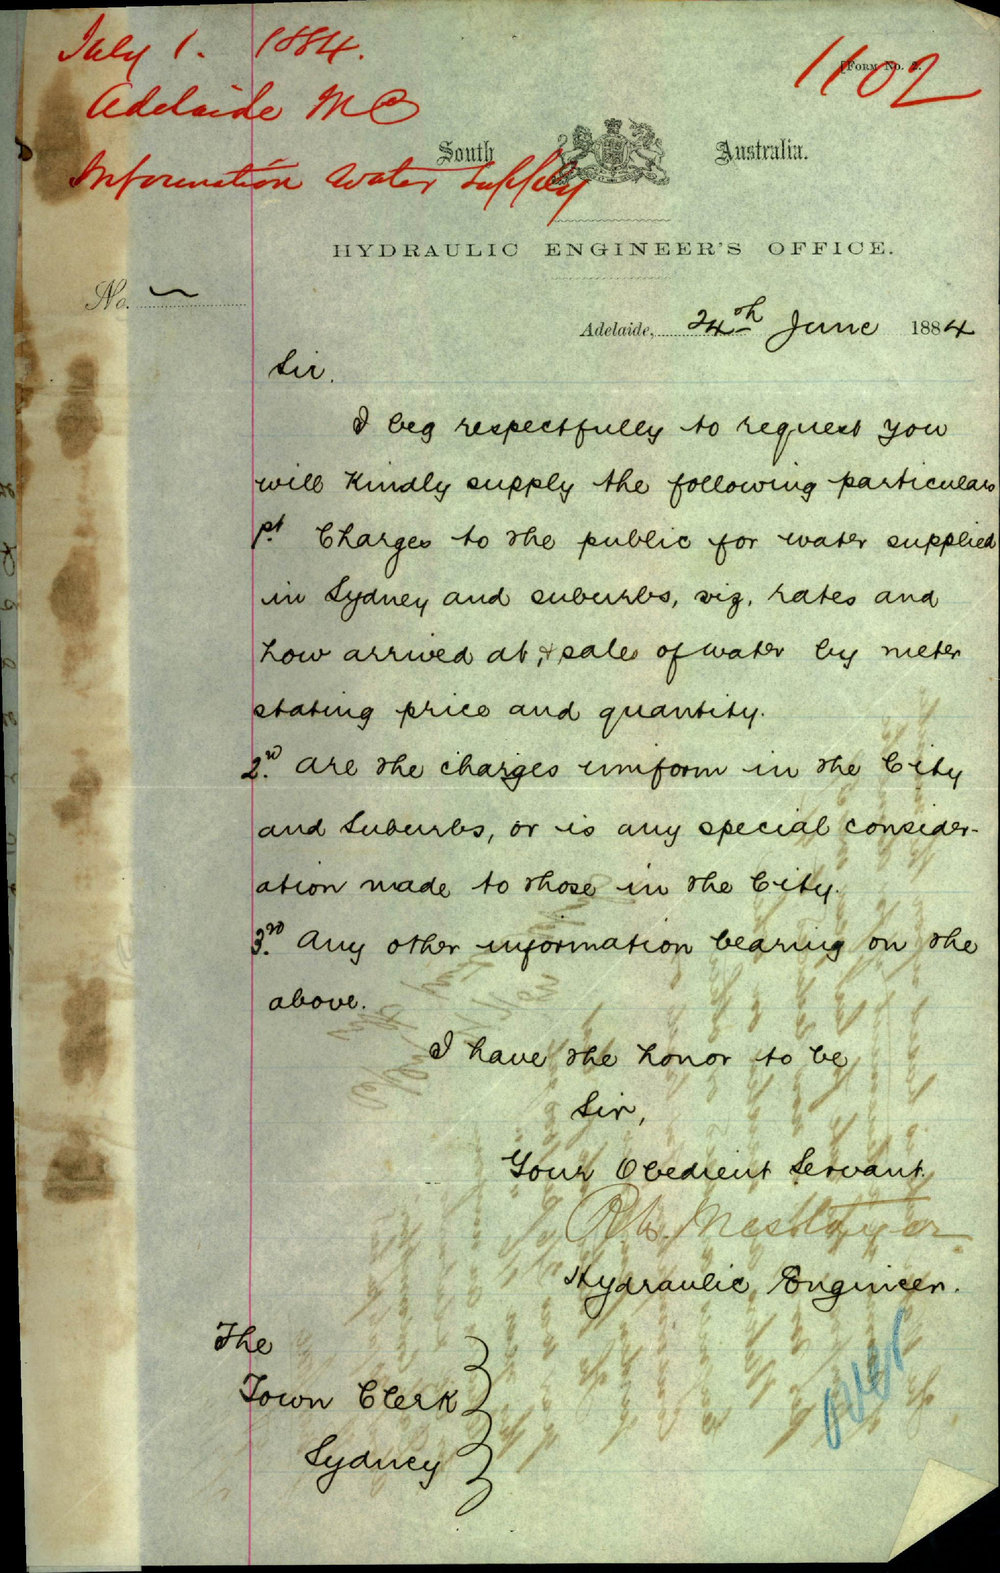 July 1. 1884.
1102
[Form No. 2.
Adelaide M C
South Australia.
Information Water Supply
HYDRAULIC ENGINEER'S OFFICE.
No.
Adelaide, 24th June 1884
Sir.
I beg respectfully to request you
will kindly supply the following particulars
Charges to the public for water supplied
in Sydney and suburbs, viz, rates and
how arrived at, & sale of water by meter
stating price and quantity.
2nd. Are the charges uniform in the City
and Suburbs, or is any special consider-
ation made to those in the City.
3rd. Any other information bearing on the
above.
I have the honor to be
Sir,
Your Obedient Servant
Hydraulic Engineer.
The
Town Clerk
Sydney
over